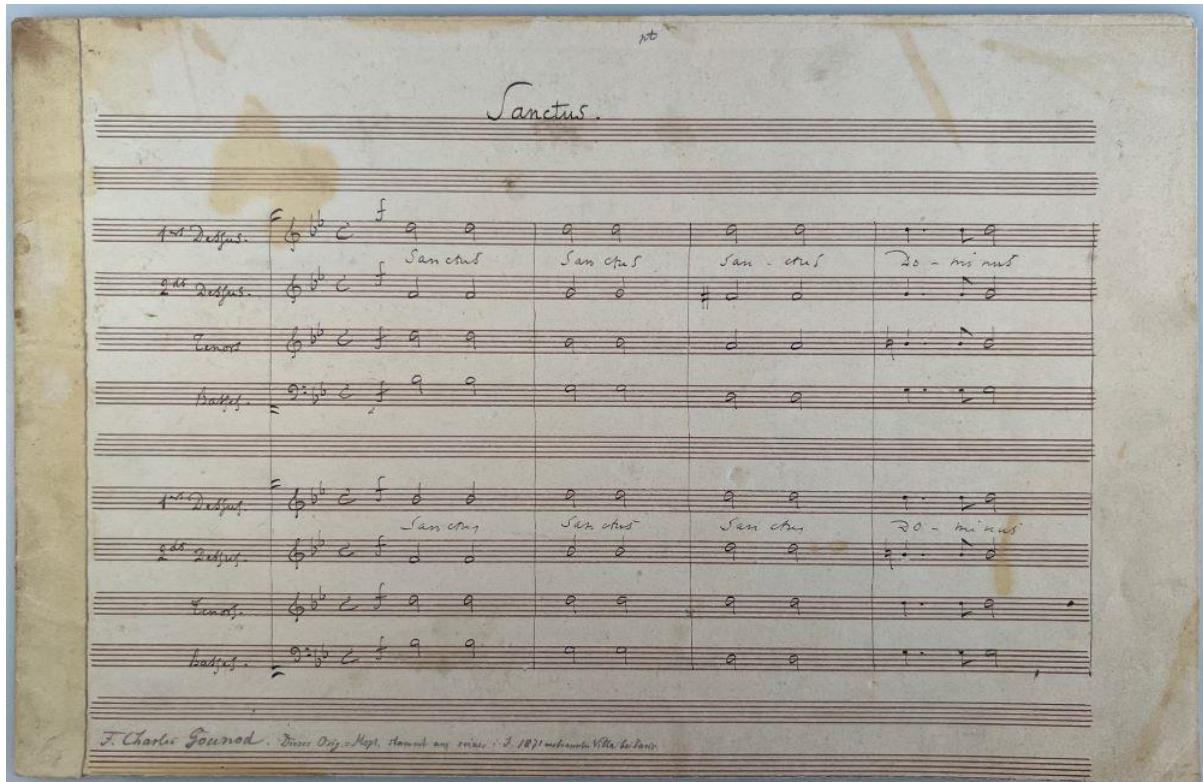 pt
Sanctus.
1ers Dessus. f
Sanctus Sanctus San - ctus Do - mi nus
2ds Dessus. f
Tenors f
Basses. f
1ers Dessus. f
Sanctus Sanctus Sanctus Do - mi nus
2ds Dessus. f
Tenors. f
Basses. f
F. Charles Gounod. Dieses Orig.=Mspt. stammt aus seiner i. J. 1871 Villa bei Paris.